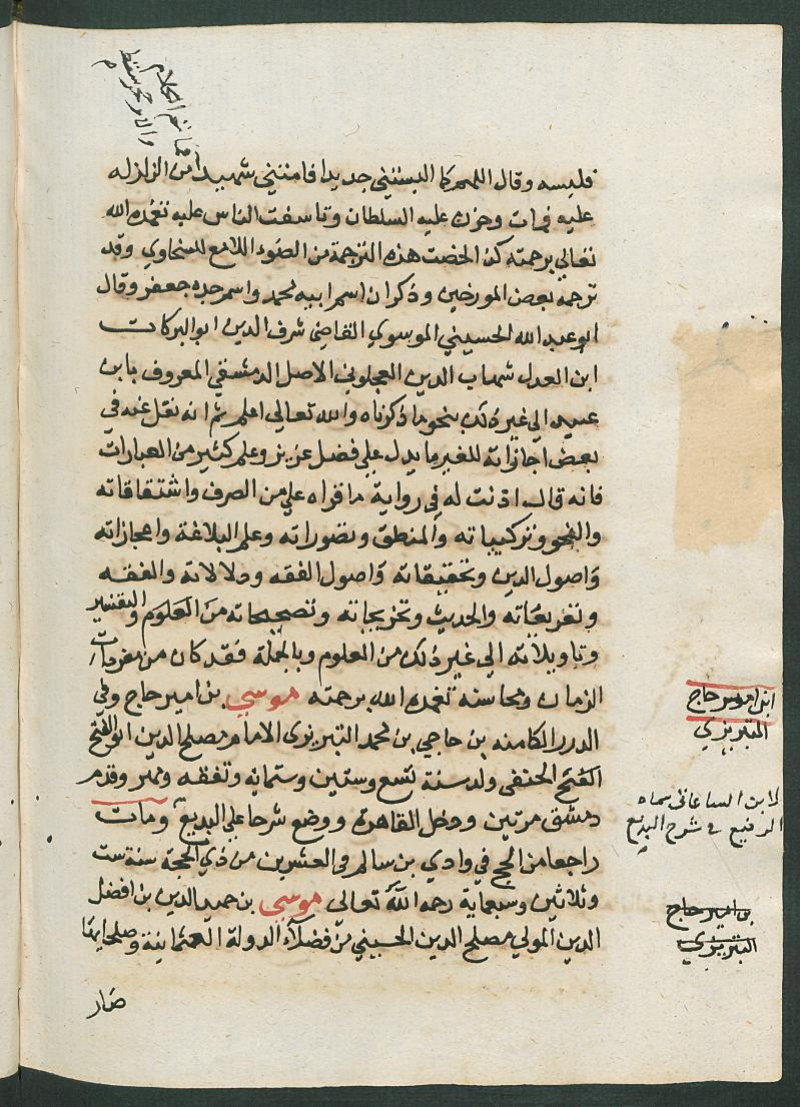 فما ثم الكلام
والامر سقط
فلبسه وقال اللهم كما البستني جديدا فامتني شهيدا من الزلزله
عليه فمات وحزن عليه السلطان وتاسفت الناس عليه تغمده الله
تعالي برحمته كذا لخصت هذه الترجمة من الضوء اللامع للسخاوي وقد
ترجمه بعض المورخين وذكر ان اسم ابيه محمد واسم جده جعفر وقال
ابو عبد الله الحسيني الموسوي القاضي شرف الدين ابو البركات
ابن العدل شهاب الدين العجلوني الاصل الدمشقي المعروف بابن
عيد الي غير ذلك بنحو ما ذكرناه والله تعالي اعلم ثم انه نقل عنه في
بعض اجازاته للغير ما يدل علي فضل عزيز وعلم كثير من العبارات
فانه قال اذنت له في رواية ما قراه علي من الصرف واشتقاقاته
والنحو وتركيباته والمنطق وتصوراته وعلم البلاغة واعجازاته
واصول الدين وتحقيقاته واصول الفقه ودلالاته والفقه
وتفريعاته والحديث وتخريجاته وتصحيحاته من العلوم والتفسير
وتاويلاته الي غير ذلك من العلوم وبالجملة فقد كان من مفردات
الزمان ومحاسنه تغمده الله برحمته موسي بن امير حاج وفي
الدرر الكامنه بن حاجي بن محمد التبريزي الامام مصلح الدين ابو الفتح
الفتح الحنفي ولد سنة تسع وستين وستمايه وتفقه ومهر وقدم
دمشق مرتين ودخل القاهرة ووضع شرحا علي البديع ومات
راجعا من الحج في وادي بن سالم في العشرين من ذي الحجة سنة ست
وثلاثين وسبعماية رحمه الله تعالى موسي بن حميد الدين بن افضل
الدين المولي مصلح الدين الحسيني من فضلاء الدولة العثمانية وصلحايها
صار
ابن امير حاج
التبريزي
لابن الساعاتي سماه
الرفيع في شرح البديع
بن امير حاج
التبريزي